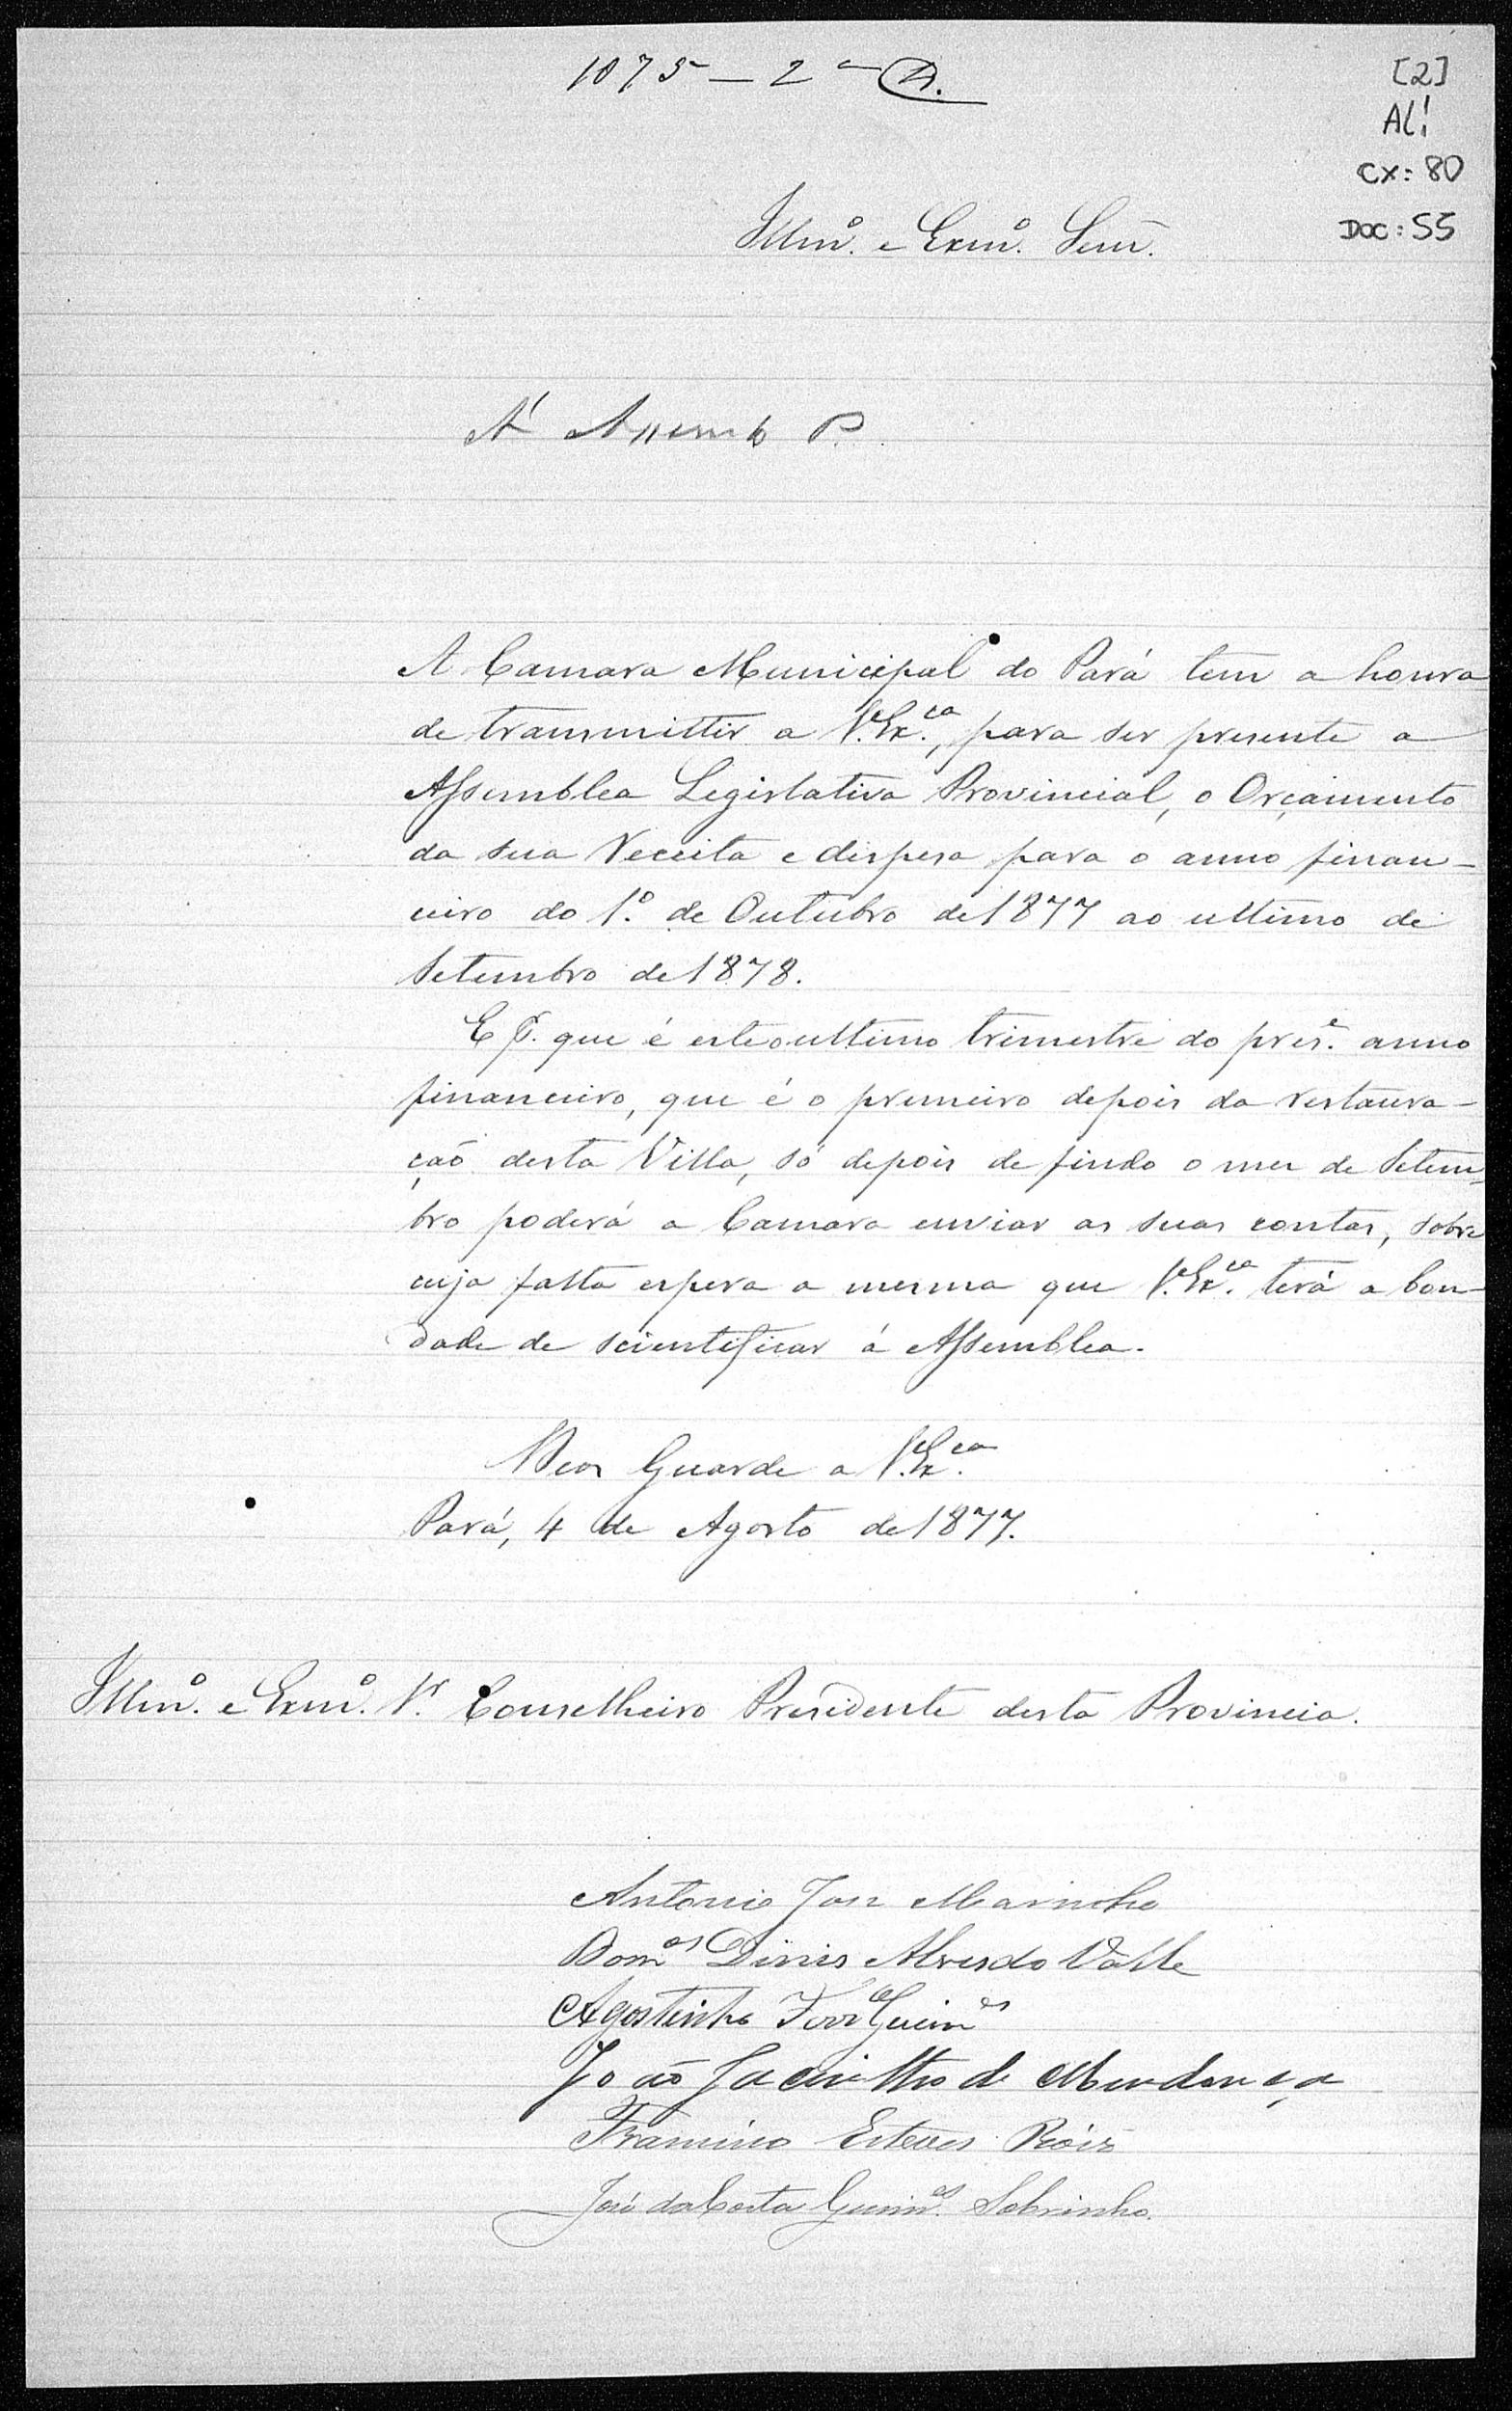 1075 — 2ª D.
[2]
AL!
CX: 80
DOC: 55
Illmº. e Exmº. Senr.
Á Assemb P.
A Camara Municipal do Pará tem a honra
de transmittir a V. Exᶜᵃ., para ser presente a
Assemblea Legislativa Provincial, o Orçamento
da sua Receita e dispesa para o anno finan-
ceiro do 1º. de Outubro de 1877 ao ultimo de
Setembro de 1878.
E P. que é este o ultimo trimestre do presᵉ. anno
financeiro, que é o premeiro depois da restaura-
çaõ desta Villa, só depois de findo o mez de Setem
bro poderá a Camara enviar as suas contas, sobre
cuja falta espera a mesma que V. Exᶜᵃ. terá a bon-
dade de scientificar á Assemblea.
Deos Guarde a V. Exᶜᵃ.
Pará, 4 de Agosto de 1877.
Illmº. e Exmº. Sʳ. Conselheiro Presidente desta Provincia.
Antonio José Marinho
Domᵒˢ Dinis Alves do Valle
Agostinho Ferrᵃ Guimᵉˢ
João Jacintho de Mendonça
Francisco Esteves Róiz
José da Costa Guimᵉˢ. Sobrinho.